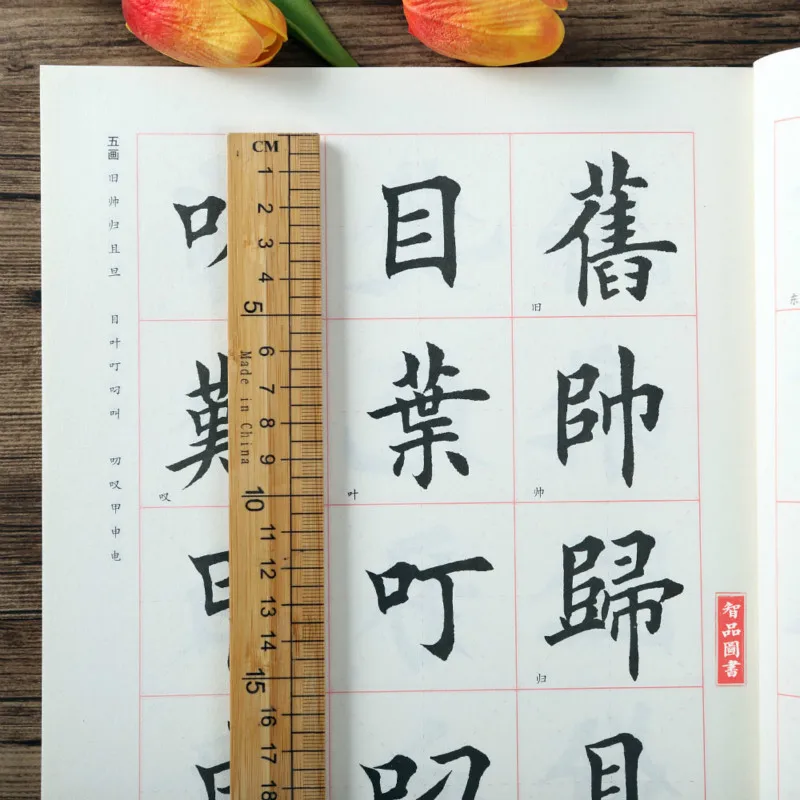 东
智品圖書
舊
旧
帥
帅
歸
归
目
葉
叶
叮
叹
CM
1
2
3
4
5
6
7
8
9
10
11
12
13
14
15
16
17
18
Made in China
五画
旧帅归且旦
目叶叮叼叫
叹甲申电